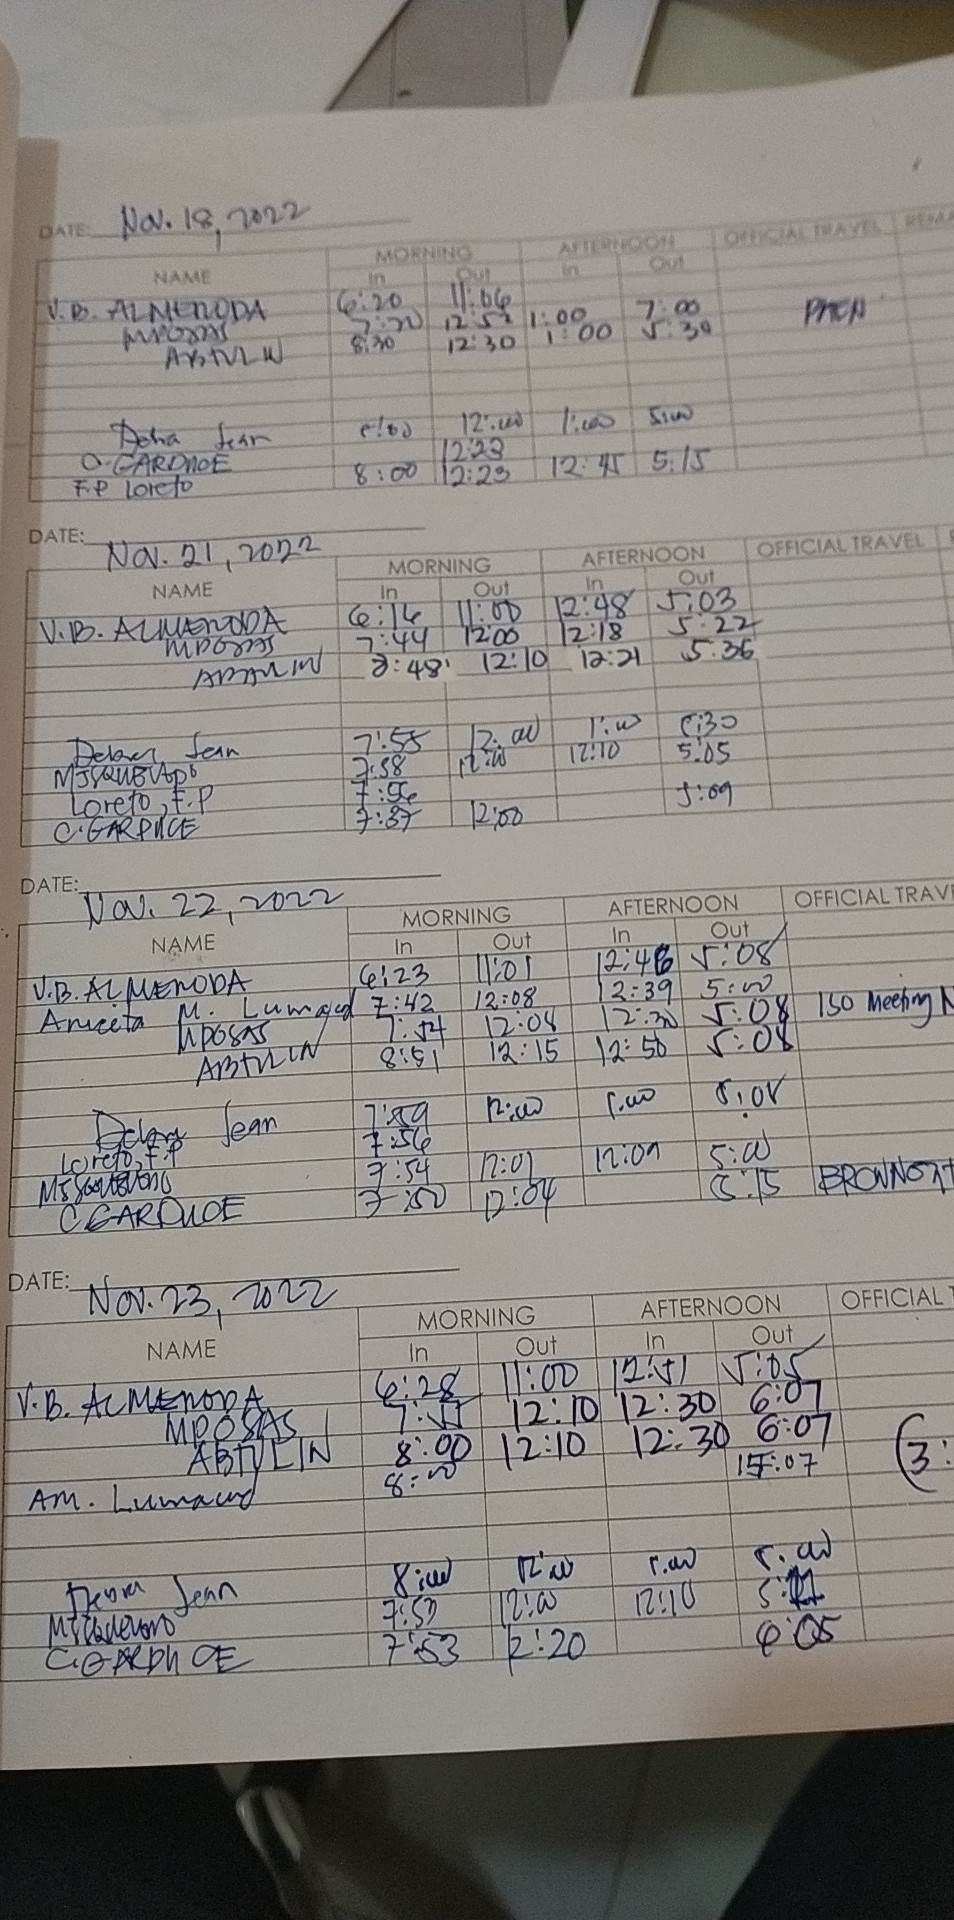 DATE: Nov. 18, 2022
MORNING AFTERNOON OFFICIAL TRAVEL
NAME In Out In Out
V.B. ALMENODA 6:20 11:06
MPOSAS 7:20 12:52 1:00 7:00
ABTULIN 8:30 12:30 1:00 5:30
Jean 12:00 1:00 5:00
C. GARDUCE 12:23
F.P Loreto 8:00 12:23 12:45 5:15
DATE: Nov. 21, 2022
MORNING AFTERNOON OFFICIAL TRAVEL
NAME In Out In Out
V.B. ALMENODA 6:16 11:00 12:48 5:03
MPOSAS 7:44 12:00 12:18 5:22
ABTULIN 8:48 12:10 12:21 5:36
Jean 7:55 12:00 1:00 5:30
7:58 12:00 12:10 5:05
Loreto, F.P 7:56
C. GARDUCE 7:37 12:00 5:09
DATE: Nov. 22, 2022
MORNING AFTERNOON OFFICIAL TRAV
NAME In Out In Out
V.B. ALMENODA 6:23 11:01 12:46 5:08
Aniceta M. Lumacad 7:42 12:08 12:39 5:00
MPOSAS 7:54 12:08 12:30 5:08 ISO Meeting
ABTULIN 8:51 12:15 12:50 5:08
Jean 7:59 12:00 1:00 5:08
Loreto, F.P 7:56
7:54 12:01 12:09 5:00
C. GARDUCE 7:50 12:04 5:15
DATE: Nov. 23, 2022
MORNING AFTERNOON OFFICIAL
NAME In Out In Out
V.B. ALMENODA 6:28 11:00 12:51 5:05
MPOSAS 7:55 12:10 12:30 6:07
ABTULIN 8:00 12:10 12:30 6:07
AM. Lumacad 8:00 15:07 (3:
Jean 8:00 12:00 1:00 5:00
7:53 12:00 12:10
C. GARDUCE 7:53 12:20 6:05